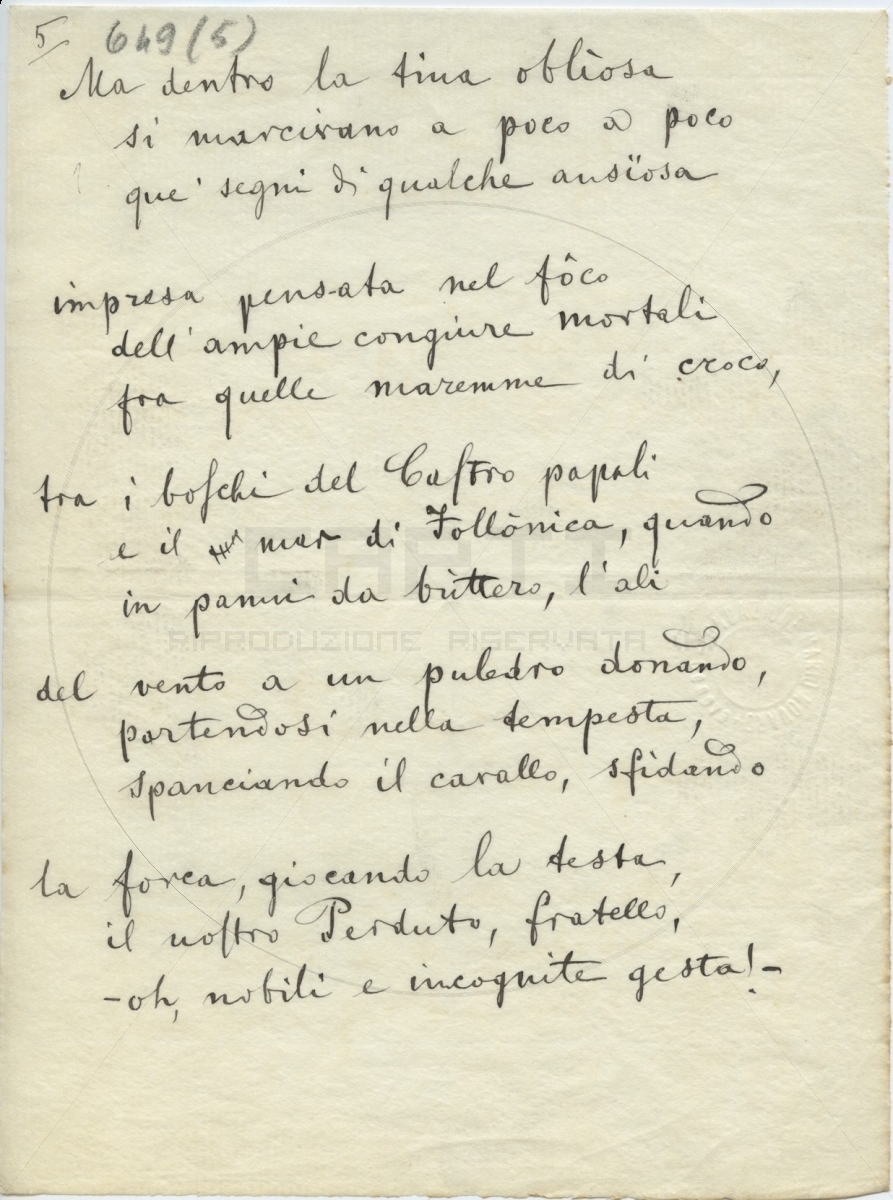 5
649 (5)
Ma dentro la tina oblïosa
si marcivano a poco a poco
que' segni di qualche ansïosa
impresa pensata nel fôco
dell'ampie congiure mortali
fra quelle maremme di croco,
tra i boschi del Castro papali
e il mar di Follònica, quando
in panni da bùttero, l'ali
del vento a un puledro donando,
partendosi nella tempesta,
spanciando il cavallo, sfidando
la forca, giocando la testa,
il nostro Perduto, fratello,
- oh, nobili e incognite gesta! -
RIPRODUZIONE RISERVATA